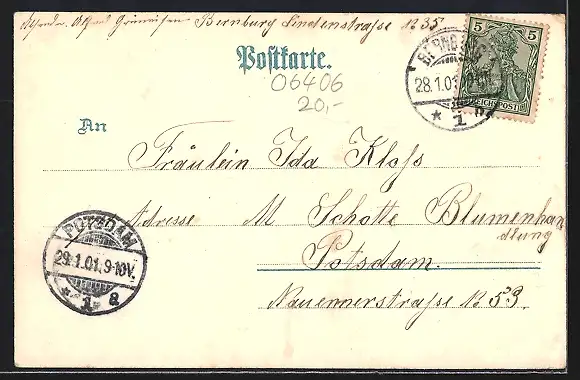 Bernburg Lindenstrasse № 35
Postkarte.
06406
20,-
BERNBURG
28.1.01
* 1
5 5
REICHSPOST
An
Fräulein Ida Kloss
Adresse M Schotte Blumenhan
dlung
Potsdam.
Nauennerstraße № 53.
POTSDAM
29.1.01.9-10V.
* 1 * a